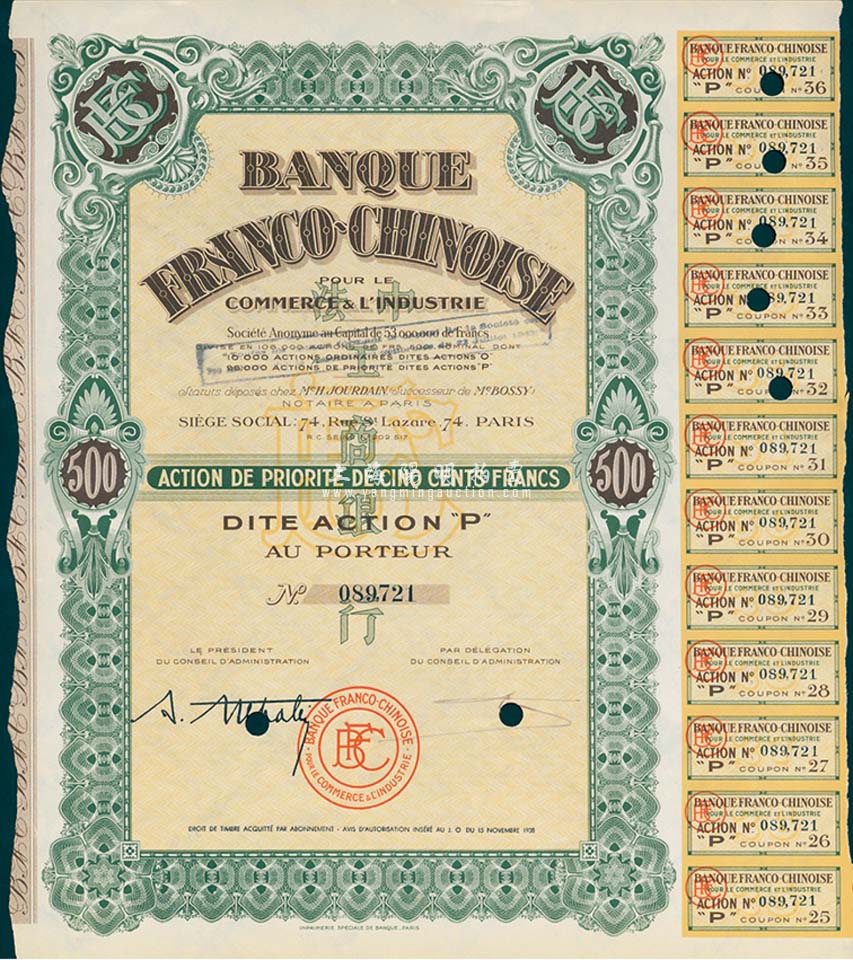 BFC
BFC
BANQUE
FRANCO-CHINOISE
POUR LE
COMMERCE & L'INDUSTRIE
法中
工
商
銀
行
Société Anonyme au Capital de 53.000.000 de Francs
DIVISÉ EN 106.000 ACTIONS DE FRS 500 NOMINAL DONT
10.000 ACTIONS ORDINAIRES DITES ACTIONS "O"
96.000 ACTIONS DE PRIORITÉ DITES ACTIONS "P"
Statuts déposés chez Me H. JOURDAIN (Successeur de Me BOSSY)
NOTAIRE A PARIS
SIÈGE SOCIAL: 74, Rue St Lazare, 74. PARIS
500
ACTION DE PRIORITÉ DE CINQ CENTS FRANCS
500
www.yangmingauction.com
DITE ACTION "P"
AU PORTEUR
No. 089,721
LE PRÉSIDENT
DU CONSEIL D'ADMINISTRATION
PAR DÉLÉGATION
DU CONSEIL D'ADMINISTRATION
BANQUE FRANCO-CHINOISE
BFC
POUR LE COMMERCE & L'INDUSTRIE
DROIT DE TIMBRE ACQUITTÉ PAR ABONNEMENT - AVIS D'AUTORISATION INSÉRÉ AU J. O DU 15 NOVEMBRE 1938
IMPRIMERIE SPÉCIALE DE BANQUE, PARIS
BANQUE FRANCO-CHINOISE
POUR LE COMMERCE ET L'INDUSTRIE
ACTION No 089,721
"P" COUPON No 36
BANQUE FRANCO-CHINOISE
POUR LE COMMERCE ET L'INDUSTRIE
ACTION No 089,721
"P" COUPON No 35
BANQUE FRANCO-CHINOISE
POUR LE COMMERCE ET L'INDUSTRIE
ACTION No 089,721
"P" COUPON No 34
BANQUE FRANCO-CHINOISE
POUR LE COMMERCE ET L'INDUSTRIE
ACTION No 089,721
"P" COUPON No 33
BANQUE FRANCO-CHINOISE
POUR LE COMMERCE ET L'INDUSTRIE
ACTION No 089,721
"P" COUPON No 32
BANQUE FRANCO-CHINOISE
POUR LE COMMERCE ET L'INDUSTRIE
ACTION No 089,721
"P" COUPON No 31
BANQUE FRANCO-CHINOISE
POUR LE COMMERCE ET L'INDUSTRIE
ACTION No 089,721
"P" COUPON No 30
BANQUE FRANCO-CHINOISE
POUR LE COMMERCE ET L'INDUSTRIE
ACTION No 089,721
"P" COUPON No 29
BANQUE FRANCO-CHINOISE
POUR LE COMMERCE ET L'INDUSTRIE
ACTION No 089,721
"P" COUPON No 28
BANQUE FRANCO-CHINOISE
POUR LE COMMERCE ET L'INDUSTRIE
ACTION No 089,721
"P" COUPON No 27
BANQUE FRANCO-CHINOISE
POUR LE COMMERCE ET L'INDUSTRIE
ACTION No 089,721
"P" COUPON No 26
BANQUE FRANCO-CHINOISE
POUR LE COMMERCE ET L'INDUSTRIE
ACTION No 089,721
"P" COUPON No 25